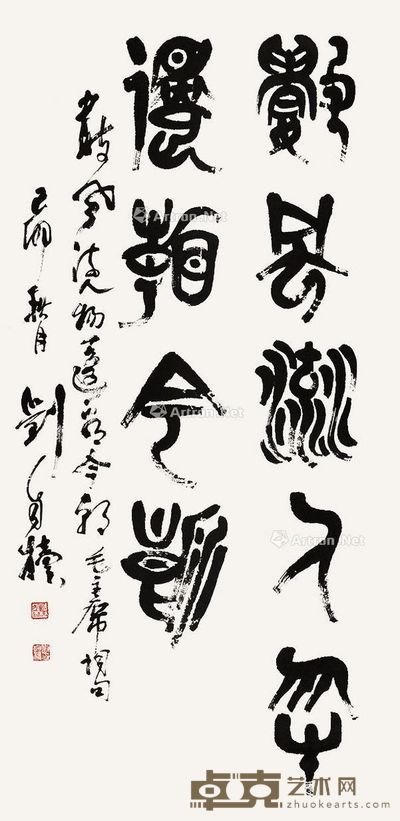 數風流人物
還看今朝
數風流人物還看今朝 毛主席词句
己卯秋月 劉自櫝
Artron.Net
卓克艺术网
zhuokearts.com